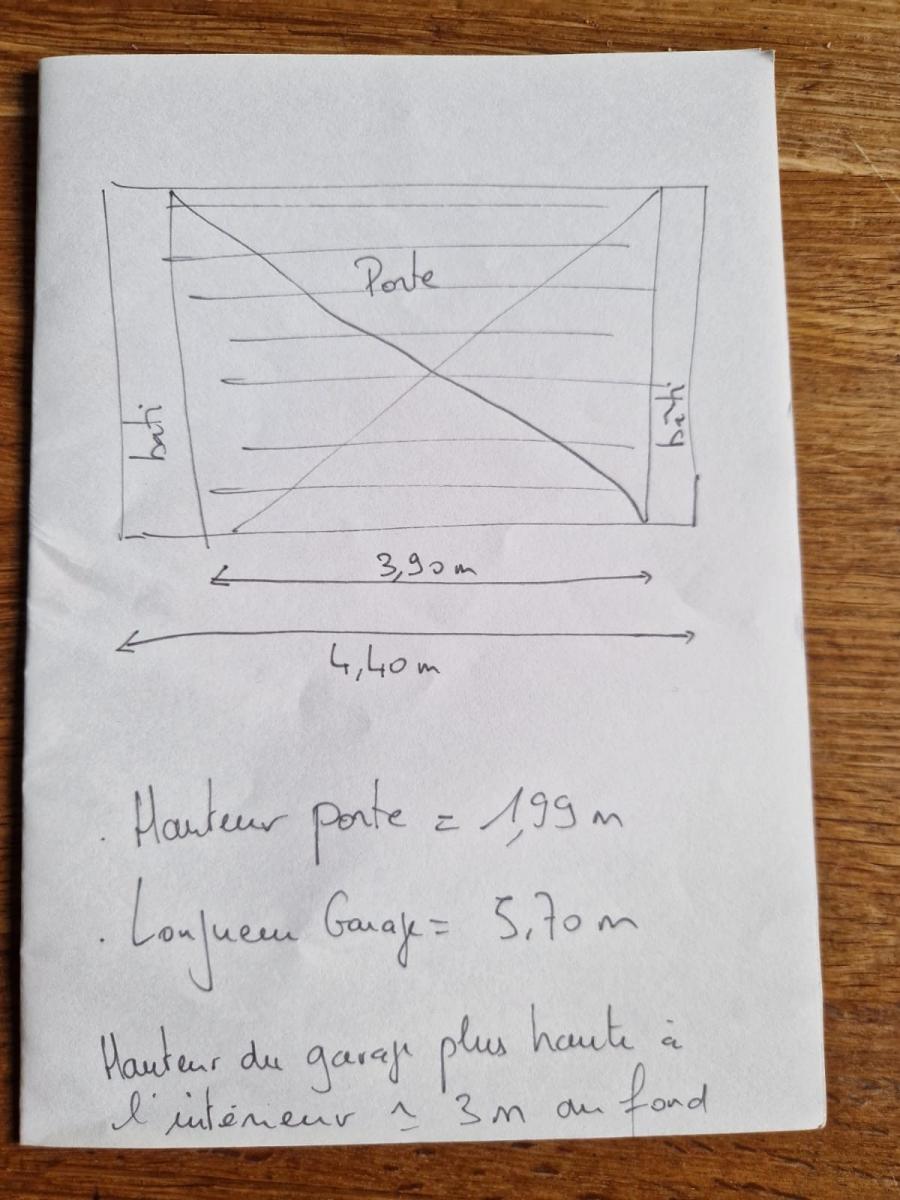 Porte
bati
bâti
3,90 m
4,40 m
. Hauteur porte = 1,99 m
. Longueur Garage = 5,70 m
Hauteur du garage plus haute à
l'intérieur ~ 3 m au fond